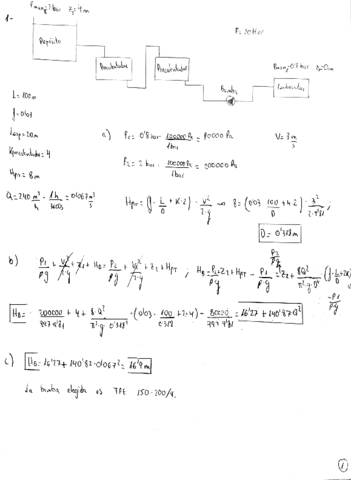 1.-
Pman2 = 2 bar z2 = 4m
Depósito
Precalentador
Precalentador
Bomba
F = 50 Hz
Pman1 = 0'8 bar z1 = 0m
Condensador
L = 100m
f = 0'03
Leq = 20m
Kprecalentador = 4
HPT = 8m
Q = 240 m³/h · 1h/3600s = 0'067 m³/s
a) P1 = 0'8 bar · 100000 Pa / 1 bar = 80000 Pa
V = 3 m/s
P2 = 2 bar · 100000 Pa / 1 bar = 200000 Pa
HPT = (f · L/D + K·2) · V²/2·g → 8 = (0'03 · 100/D + 4·2) · 3²/2·9'81 ;
D = 0'318m
b) P1/ρg + V1²/2·g + z1 + HB = P2/ρg + V2²/2·g + z2 + HPT ; HB = P2/ρg + z2 + HPT - P1/ρ·g = P2/ρg + z2 + 8Q²/π²·g·D⁴ (f·L/D + 2K) - P1/ρg
HB = 200000/997·9'81 + 4 + 8·Q²/π²·g·0'318⁴ · (0'03 · 100/0'318 + 2·4) - 80000/997·9'81 = 16'27 + 140'87·Q²
c) HB = 16'27 + 140'87·0'067² = 16'9m
La bomba elegida es TPE 150-200/4.
1